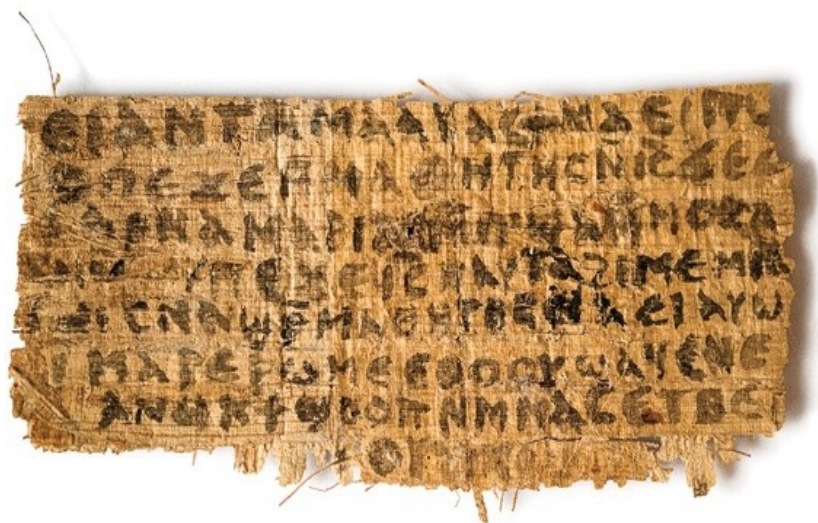 ⲉⲓⲁⲛⲧⲁⲙⲁⲁⲩⲁⲥϯⲛⲁⲉⲓⲡⲱ
ϥⲡⲉϫⲉⲙ̄ⲙⲁⲑⲏⲧⲏⲥⲛ̄ⲓ̄ⲥ̄ϫⲉⲥ
ⲁⲣⲛⲁⲙⲁⲣⲓⲁⲙⲙ̄ⲡϣⲁⲙ̄ⲙⲟⲥⲁ
ⲡⲉϫⲉⲓ̄ⲥ̄ⲛⲁⲩⲧⲁϩⲓⲙⲉⲙⲛ̄
ⲥⲛⲁϣⲣ̄ⲙⲁⲑⲏⲧⲏⲥⲛⲁⲉⲓⲁⲩⲱ
ⲓⲙⲁⲣⲉⲣⲱⲙⲉⲉⲑⲟⲟⲩϣⲁϥⲉⲛⲉ
ⲁⲛⲟⲕϯϣⲟⲟⲡⲛⲙⲙⲁⲥⲉⲧⲃⲉ